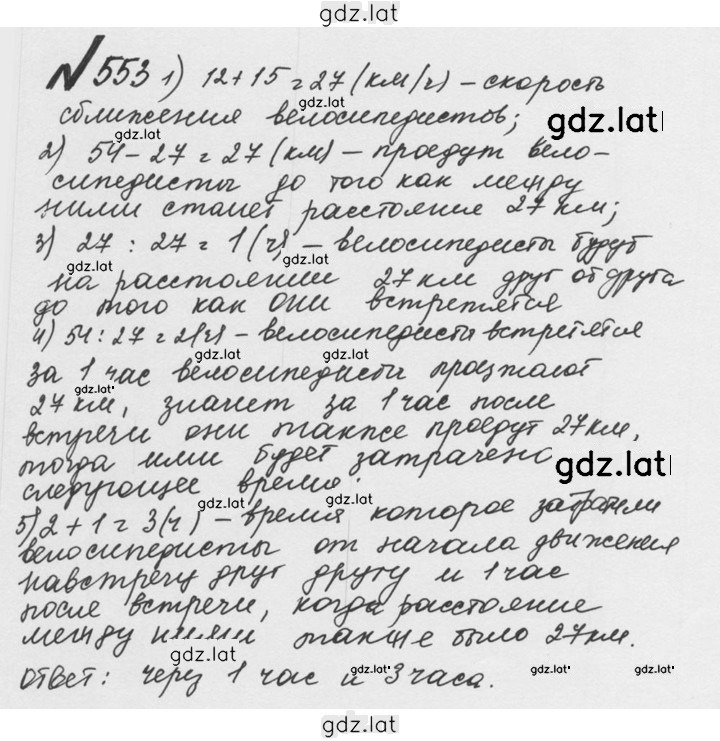 gdz.lat
№553 1) 12+15=27 (км/ч) – скорость
gdz.lat
сближения велосипедистов;
gdz.lat
2) 54–27=27 (км) – проедут вело-
сипедисты до того как между
ними станет расстояние 27 км;
3) 27:27=1(ч) – велосипедисты будут
gdz.lat gdz.lat
на расстоянии 27 км друг от друга
до того как они встретятся
4) 54:27=2(ч) – велосипедисты встретятся
gdz.lat gdz.lat
за 1 час велосипедисты проезжают
gdz.lat
27 км, значит за 1 час после
встречи они также проедут 27 км,
тогда ими будет затрачено
gdz.lat
следующее время:
gdz.lat
5) 2+1=3(ч) – время которое затратили
велосипедисты от начала движения
навстречу друг другу и 1 час
после встречи, когда расстояние
между ними также было 27 км.
gdz.lat
ответ: через 1 час и 3 часа.
gdz.lat gdz.lat gdz.lat
gdz.lat